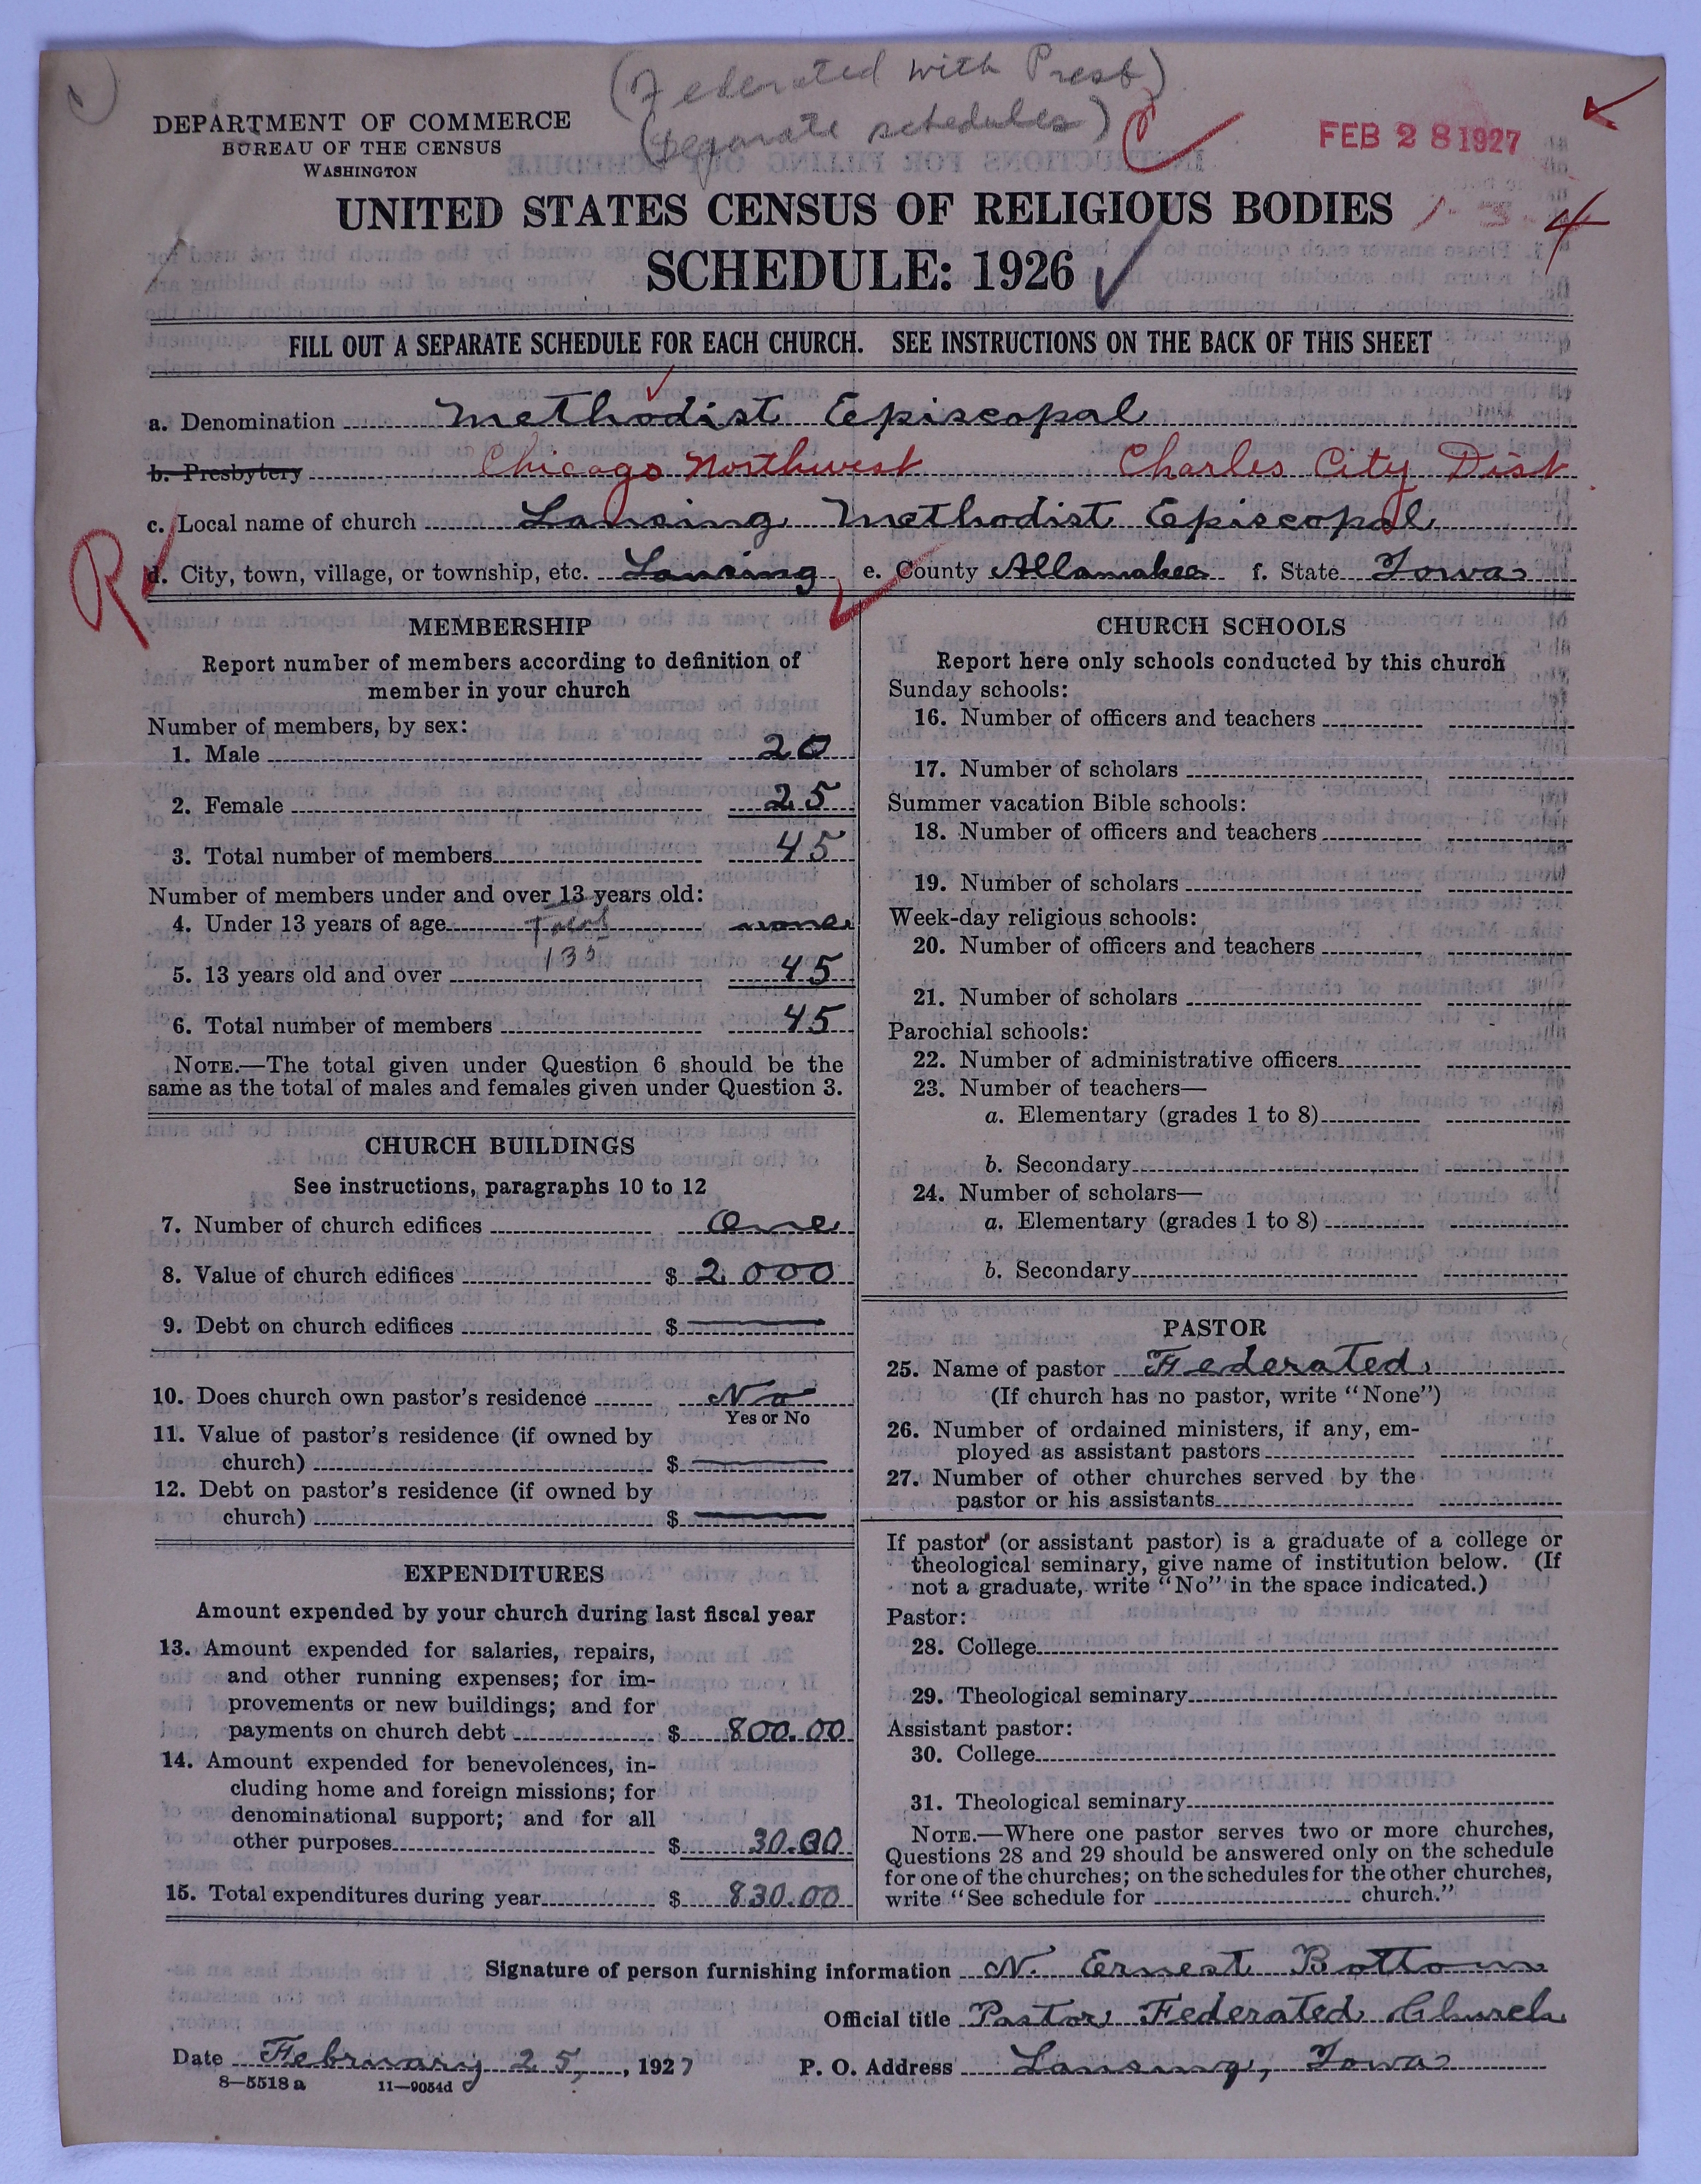 (Federated with Presb)
(separate schedules)
DEPARTMENT OF COMMERCE
BUREAU OF THE CENSUS
WASHINGTON
FEB 28 1927
UNITED STATES CENSUS OF RELIGIOUS BODIES
1-3-4
SCHEDULE: 1926
FILL OUT A SEPARATE SCHEDULE FOR EACH CHURCH. SEE INSTRUCTIONS ON THE BACK OF THIS SHEET
a. Denomination Methodist Episcopal
b. Presbytery Chicago Northwest Charles City Dist
c. Local name of church Lansing Methodist Episcopal
R
d. City, town, village, or township, etc. Lansing e. County Allamakee f. State Iowa
MEMBERSHIP
Report number of members according to definition of
member in your church
Number of members, by sex:
1. Male 20
2. Female 25
3. Total number of members 45
Number of members under and over 13 years old:
4. Under 13 years of age none
5. 13 years old and over 45
6. Total number of members 45
NOTE.—The total given under Question 6 should be the
same as the total of males and females given under Question 3.
CHURCH BUILDINGS
See instructions, paragraphs 10 to 12
7. Number of church edifices One
8. Value of church edifices $ 2000
9. Debt on church edifices $ —
10. Does church own pastor's residence No
Yes or No
11. Value of pastor's residence (if owned by
church) $ —
12. Debt on pastor's residence (if owned by
church) $ —
EXPENDITURES
Amount expended by your church during last fiscal year
13. Amount expended for salaries, repairs,
and other running expenses; for im-
provements or new buildings; and for
payments on church debt $ 800.00
14. Amount expended for benevolences, in-
cluding home and foreign missions; for
denominational support; and for all
other purposes $ 30.00
15. Total expenditures during year $ 830.00
CHURCH SCHOOLS
Report here only schools conducted by this church
Sunday schools:
16. Number of officers and teachers
17. Number of scholars
Summer vacation Bible schools:
18. Number of officers and teachers
19. Number of scholars
Week-day religious schools:
20. Number of officers and teachers
21. Number of scholars
Parochial schools:
22. Number of administrative officers
23. Number of teachers—
a. Elementary (grades 1 to 8)
b. Secondary
24. Number of scholars—
a. Elementary (grades 1 to 8)
b. Secondary
PASTOR
25. Name of pastor Federated
(If church has no pastor, write "None")
26. Number of ordained ministers, if any, em-
ployed as assistant pastors
27. Number of other churches served by the
pastor or his assistants
If pastor (or assistant pastor) is a graduate of a college or
theological seminary, give name of institution below. (If
not a graduate, write "No" in the space indicated.)
Pastor:
28. College
29. Theological seminary
Assistant pastor:
30. College
31. Theological seminary
NOTE.—Where one pastor serves two or more churches,
Questions 28 and 29 should be answered only on the schedule
for one of the churches; on the schedules for the other churches,
write "See schedule for church."
Signature of person furnishing information N. Ernest Bottom
Official title Pastor Federated Church
Date February 25, 1927 P. O. Address Lansing, Iowa
8—5518 a 11—9054d